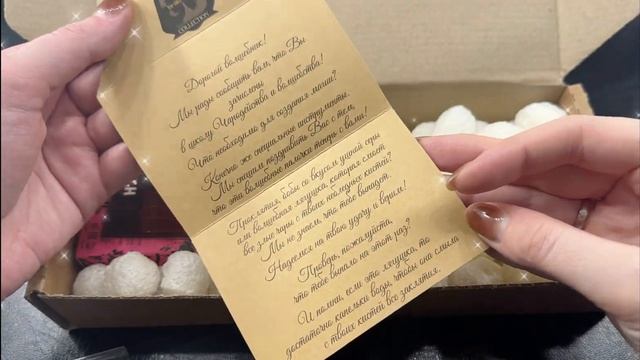 COLLECTION
Дорогой волшебник!
Мы рады сообщить вам, что Вы
зачислены
в школу Чародейства и волшебства!
Что необходимо для создания магии?
Конечно же специальные инструменты.
Мы спешим поздравить Вас с тем,
что эти волшебные палочки теперь с вами!
Проклятия, бобы со вкусом ушной серы
или волшебная лягушка, которая смоет
все злые чары с твоих нелегких кистей?
Мы не знаем, что тебе выпадет.
Надеемся на твою удачу и верим!
Правда, пожалуйста,
что тебе выпало на этот раз?
И помни, если это лягушка, то
достаточно капельки воды, чтобы она смыла
с твоих кистей все заклятия.
H